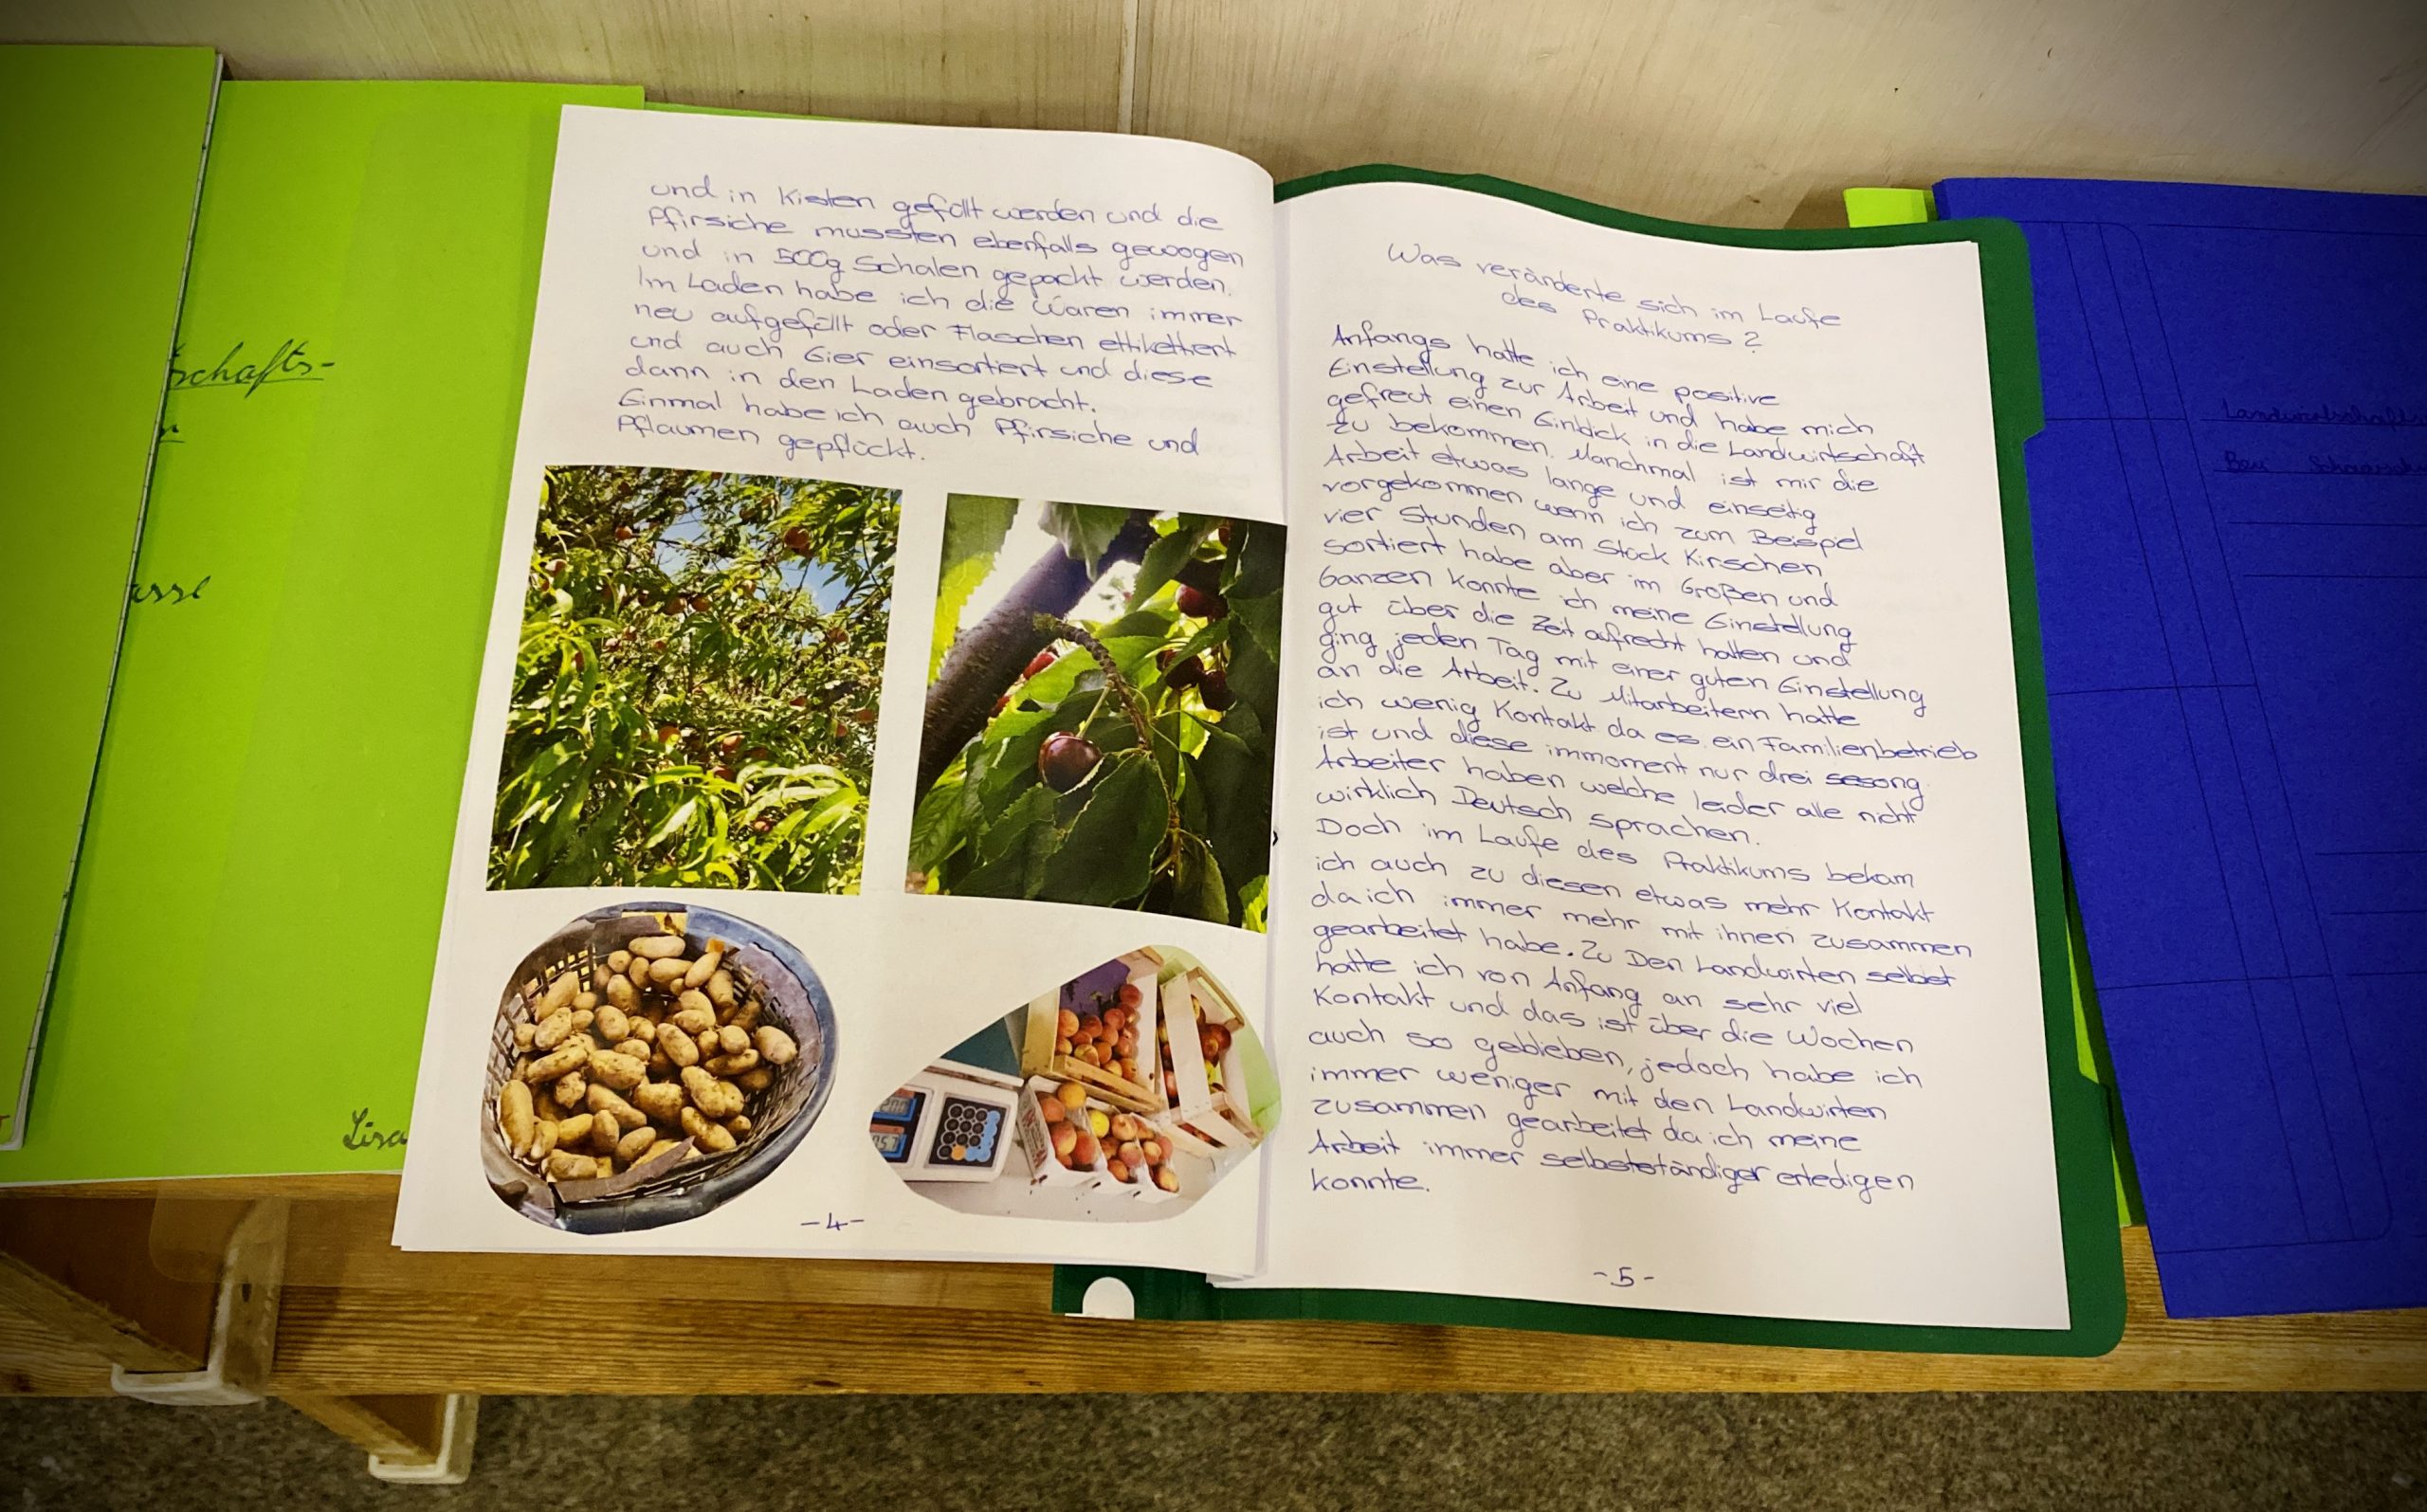 schafts-
asse
Lisa
und in Kisten gefüllt werden und die
Pfirsiche mussten ebenfalls gewogen
und in 500g Schalen gepackt werden.
Im Laden habe ich die Waren immer
neu aufgefüllt oder Flaschen ettikettiert
und auch Eier einsortiert und diese
dann in den Laden gebracht.
Einmal habe ich auch Pfirsiche und
Pflaumen gepflückt.
-4-
Was veränderte sich im Laufe
des Praktikums?
Anfangs hatte ich eine positive
Einstellung zur Arbeit und habe mich
gefreut einen Einblick in die Landwirtschaft
zu bekommen. Manchmal ist mir die
Arbeit etwas lange und einseitig
vorgekommen wenn ich zum Beispiel
vier Stunden am Stück Kirschen
sortiert habe aber im Großen und
Ganzen konnte ich meine Einstellung
gut über die Zeit aufrecht halten und
ging jeden Tag mit einer guten Einstellung
an die Arbeit. Zu Mitarbeitern hatte
ich wenig Kontakt da es ein Familienbetrieb
ist und diese immoment nur drei sesong
Arbeiter haben welche leider alle nicht
wirklich Deutsch sprachen.
Doch im Laufe des Praktikums bekam
ich auch zu diesen etwas mehr Kontakt
da ich immer mehr mit ihnen zusammen
gearbeitet habe. Zu Den Landwirten selbst
hatte ich von Anfang an sehr viel
Kontakt und das ist über die Wochen
auch so geblieben, jedoch habe ich
immer weniger mit den Landwirten
zusammen gearbeitet da ich meine
Arbeit immer selbstständiger erledigen
konnte.
-5-
Landwirtschafts